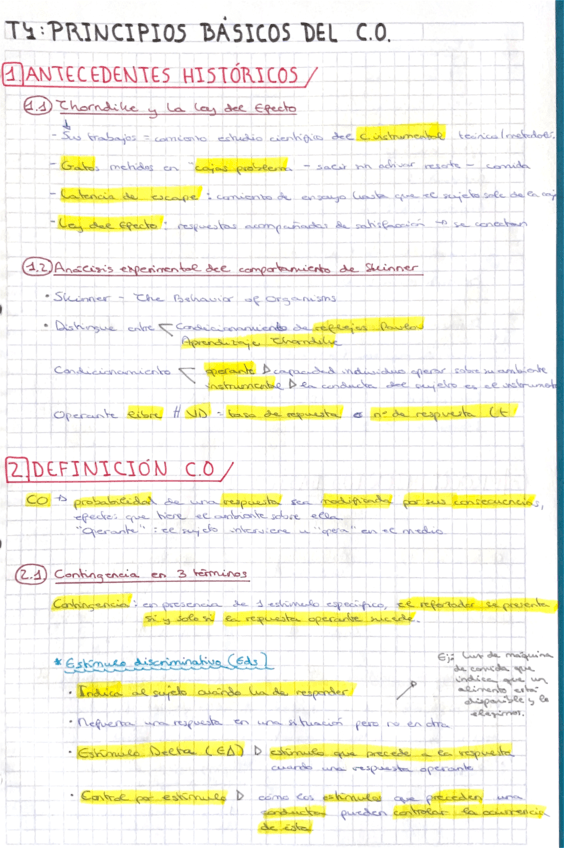 T4: PRINCIPIOS BÁSICOS DEL C.O.
1 ANTECEDENTES HISTÓRICOS
1.1 Thorndike y la Ley del Efecto
- Sus trabajos = comienzo estudio científico del C. instrumental. técnica/metodos.
- Gatos metidos en "cajas problema" - salir activar resorte - comida
- Latencia de escape: comienzo de ensayo hasta que el sujeto sale de la caj
- Ley del Efecto: respuestas acompañadas de satisfacción → se conectan
1.2 Análisis experimental del comportamiento de Skinner
• Skinner - The Behavior of Organisms
• Distingue entre Condicionamiento de reflejos Pavlov
Aprendizaje Thorndike
Condicionamiento operante ▷ capacidad individuo operar sobre su ambiente
instrumental ▷ la conducta del sujeto es el instrument
Operante libre // VD = tasa de respuesta o nº de respuesta (t
2. DEFINICIÓN C.O
CO → probabilidad de una respuesta sea modificada por sus consecuencias,
efectos que tiene el ambiente sobre ella
"Operante": el sujeto interviene u "opera" en el medio
2.1 Contingencia en 3 términos
Contingencia: en presencia de 1 estímulo específico, el reforzador se presenta
si y solo si la respuesta operante sucede.
* Estímulo discriminativo (Eds)
Ej: Luz de máquina
de comida que
indica que un
alimento está
disponible y lo
elegimos.
• Indica al sujeto cuándo ha de responder
• Refuerza una respuesta en una situación pero no en otra
• Estímulo Delta (EΔ) ▷ estímulo que precede a la respuesta
cuando una respuesta operante
• Control por estímulo ▷ cómo los estímulos que preceden una
conducta pueden controlar la ocurrencia
de ésta